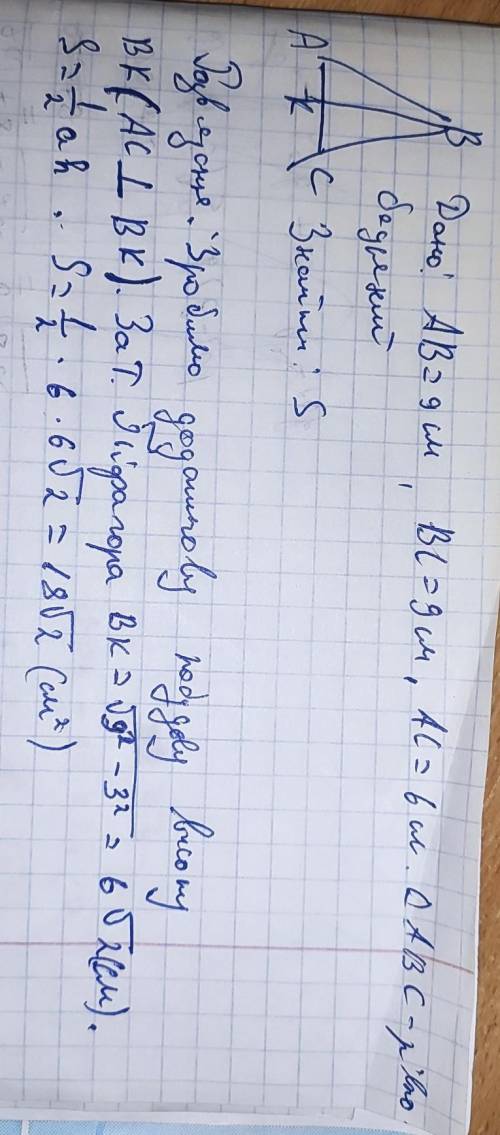 Дано: AB = 9 см, BC = 9 см, AC = 6 см. △ABC – рівно
бедрений
A
B
K
C
Знайти: S
Розв'язання. Зробимо додаткову побудову висоту
BK (AC ⊥ BK). За т. Піфагора BK = √9² – 3² = 6√2 (см).
S = 1/2 ah ; S = 1/2 · 6 · 6√2 = 18√2 (см²)